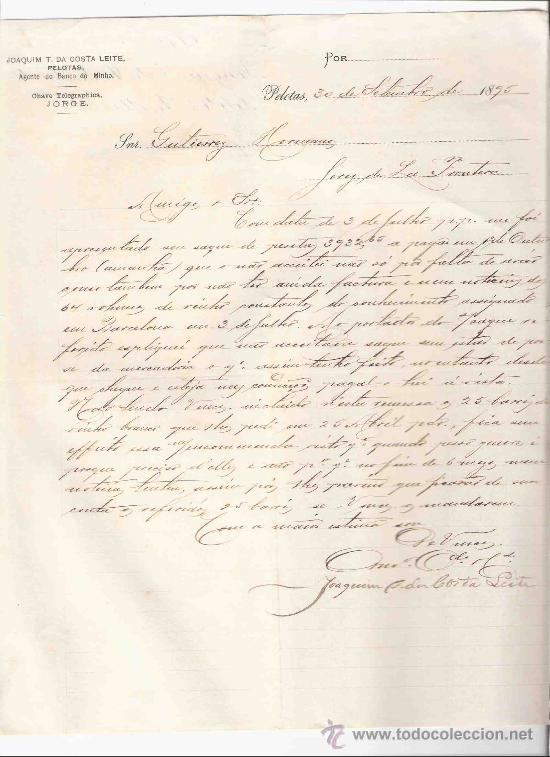 JOAQUIM T. DA COSTA LEITE,
PELOTAS,
Agente do Banco do Minho.
Chave Telegraphica,
JORGE.
POR
Pelotas, 30 de Setembro de 1895
Snr. Gutierrez Hermanos
Jerez de La Frontera
Amigo e Snr.
Com data de 3 de Julho p.p. me foi
apresentado seu saque de pesetas 3922, a pagar em 1º de Outu
bro (amanhã) que o não aceitei não só por falta de
como tambem por não ter ainda factura e nem noticia de
64 volumes de vinho constantes do conhecimento assignado
em Barcelona em 2 de Julho. Ao portador do saque re
ferido expliquei que não aceitaria saque sem estar de pos
se da mercadoria o q. assim tenho feito, no entanto, desde
que chegue e esteja nas condições pagal o hei á vista
Não tendo Vmce. incluido nesta remessa os 25 barris de
vinho branco que lhe pedi em 26 Abril pdo., fica sem
effeito essa encommenda visto q. quando peço genero é
porque preciso d'elle, e não p. q. no fim de 6 mezes nem
noticia tenho, assim pois lhe previno que ficarão de sua
conta os referidos 25 barris se Vmce. os mandarem.
Com a maior estima sou
De Vmce.
Joaquim T. da Costa Leite
www.todocoleccion.net